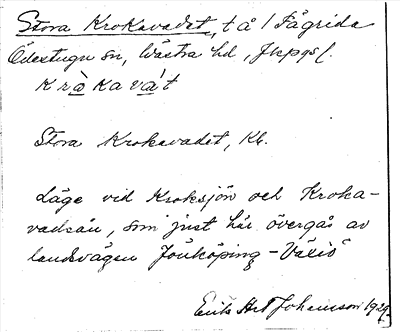 Stora Krokavadet, t å 1 Fågrida
Ödestugu sn, Västra hd, Jkpgs l.
kròkavá't
Stora Krokavadet, Kb.
Läge vid Kroksjön och Kroka-
vadsån, som just här övergås av
landsvägen Jönköping - Växiö
Erik Hst Johansson 1929.